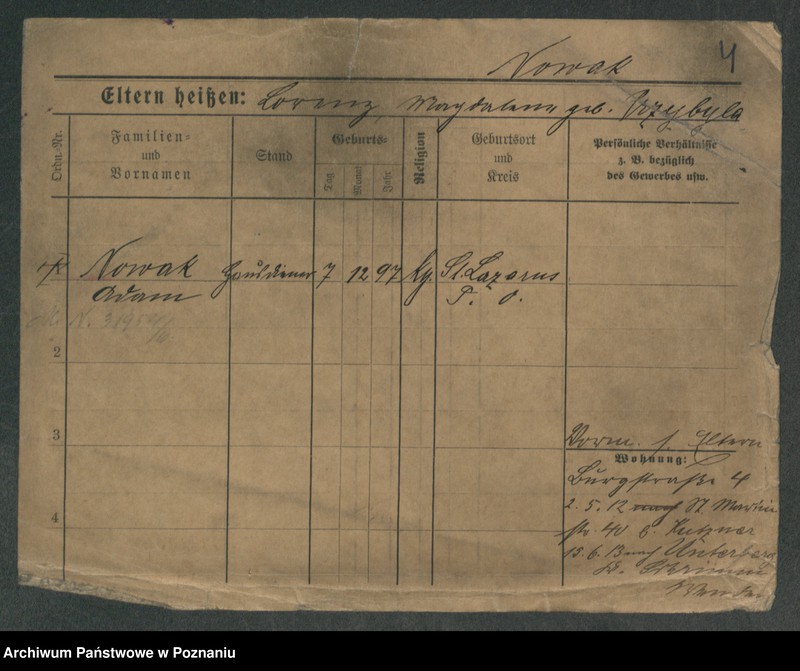 Nowak 4
Eltern heißen: Lorenz, Magdalene geb. Przybyla
Ordn.-Nr.
Familien-
und
Vornamen
Stand
Geburts-
Tag
Monat
Jahr
Religion
Geburtsort
und
Kreis
Persönliche Verhältnisse
z. B. bezüglich
des Gewerbes usw.
Nowak Hausdiener 7 12 97 kg. St. Lazarus
Adam P. O.
2
3
4
Vorm. s. Eltern
Wohnung:
Burgstraße 4
2. 5. 12 nach St. Martin
str. 40 b.
15. 6. 13 nach Unterberg
Archiwum Państwowe w Poznaniu